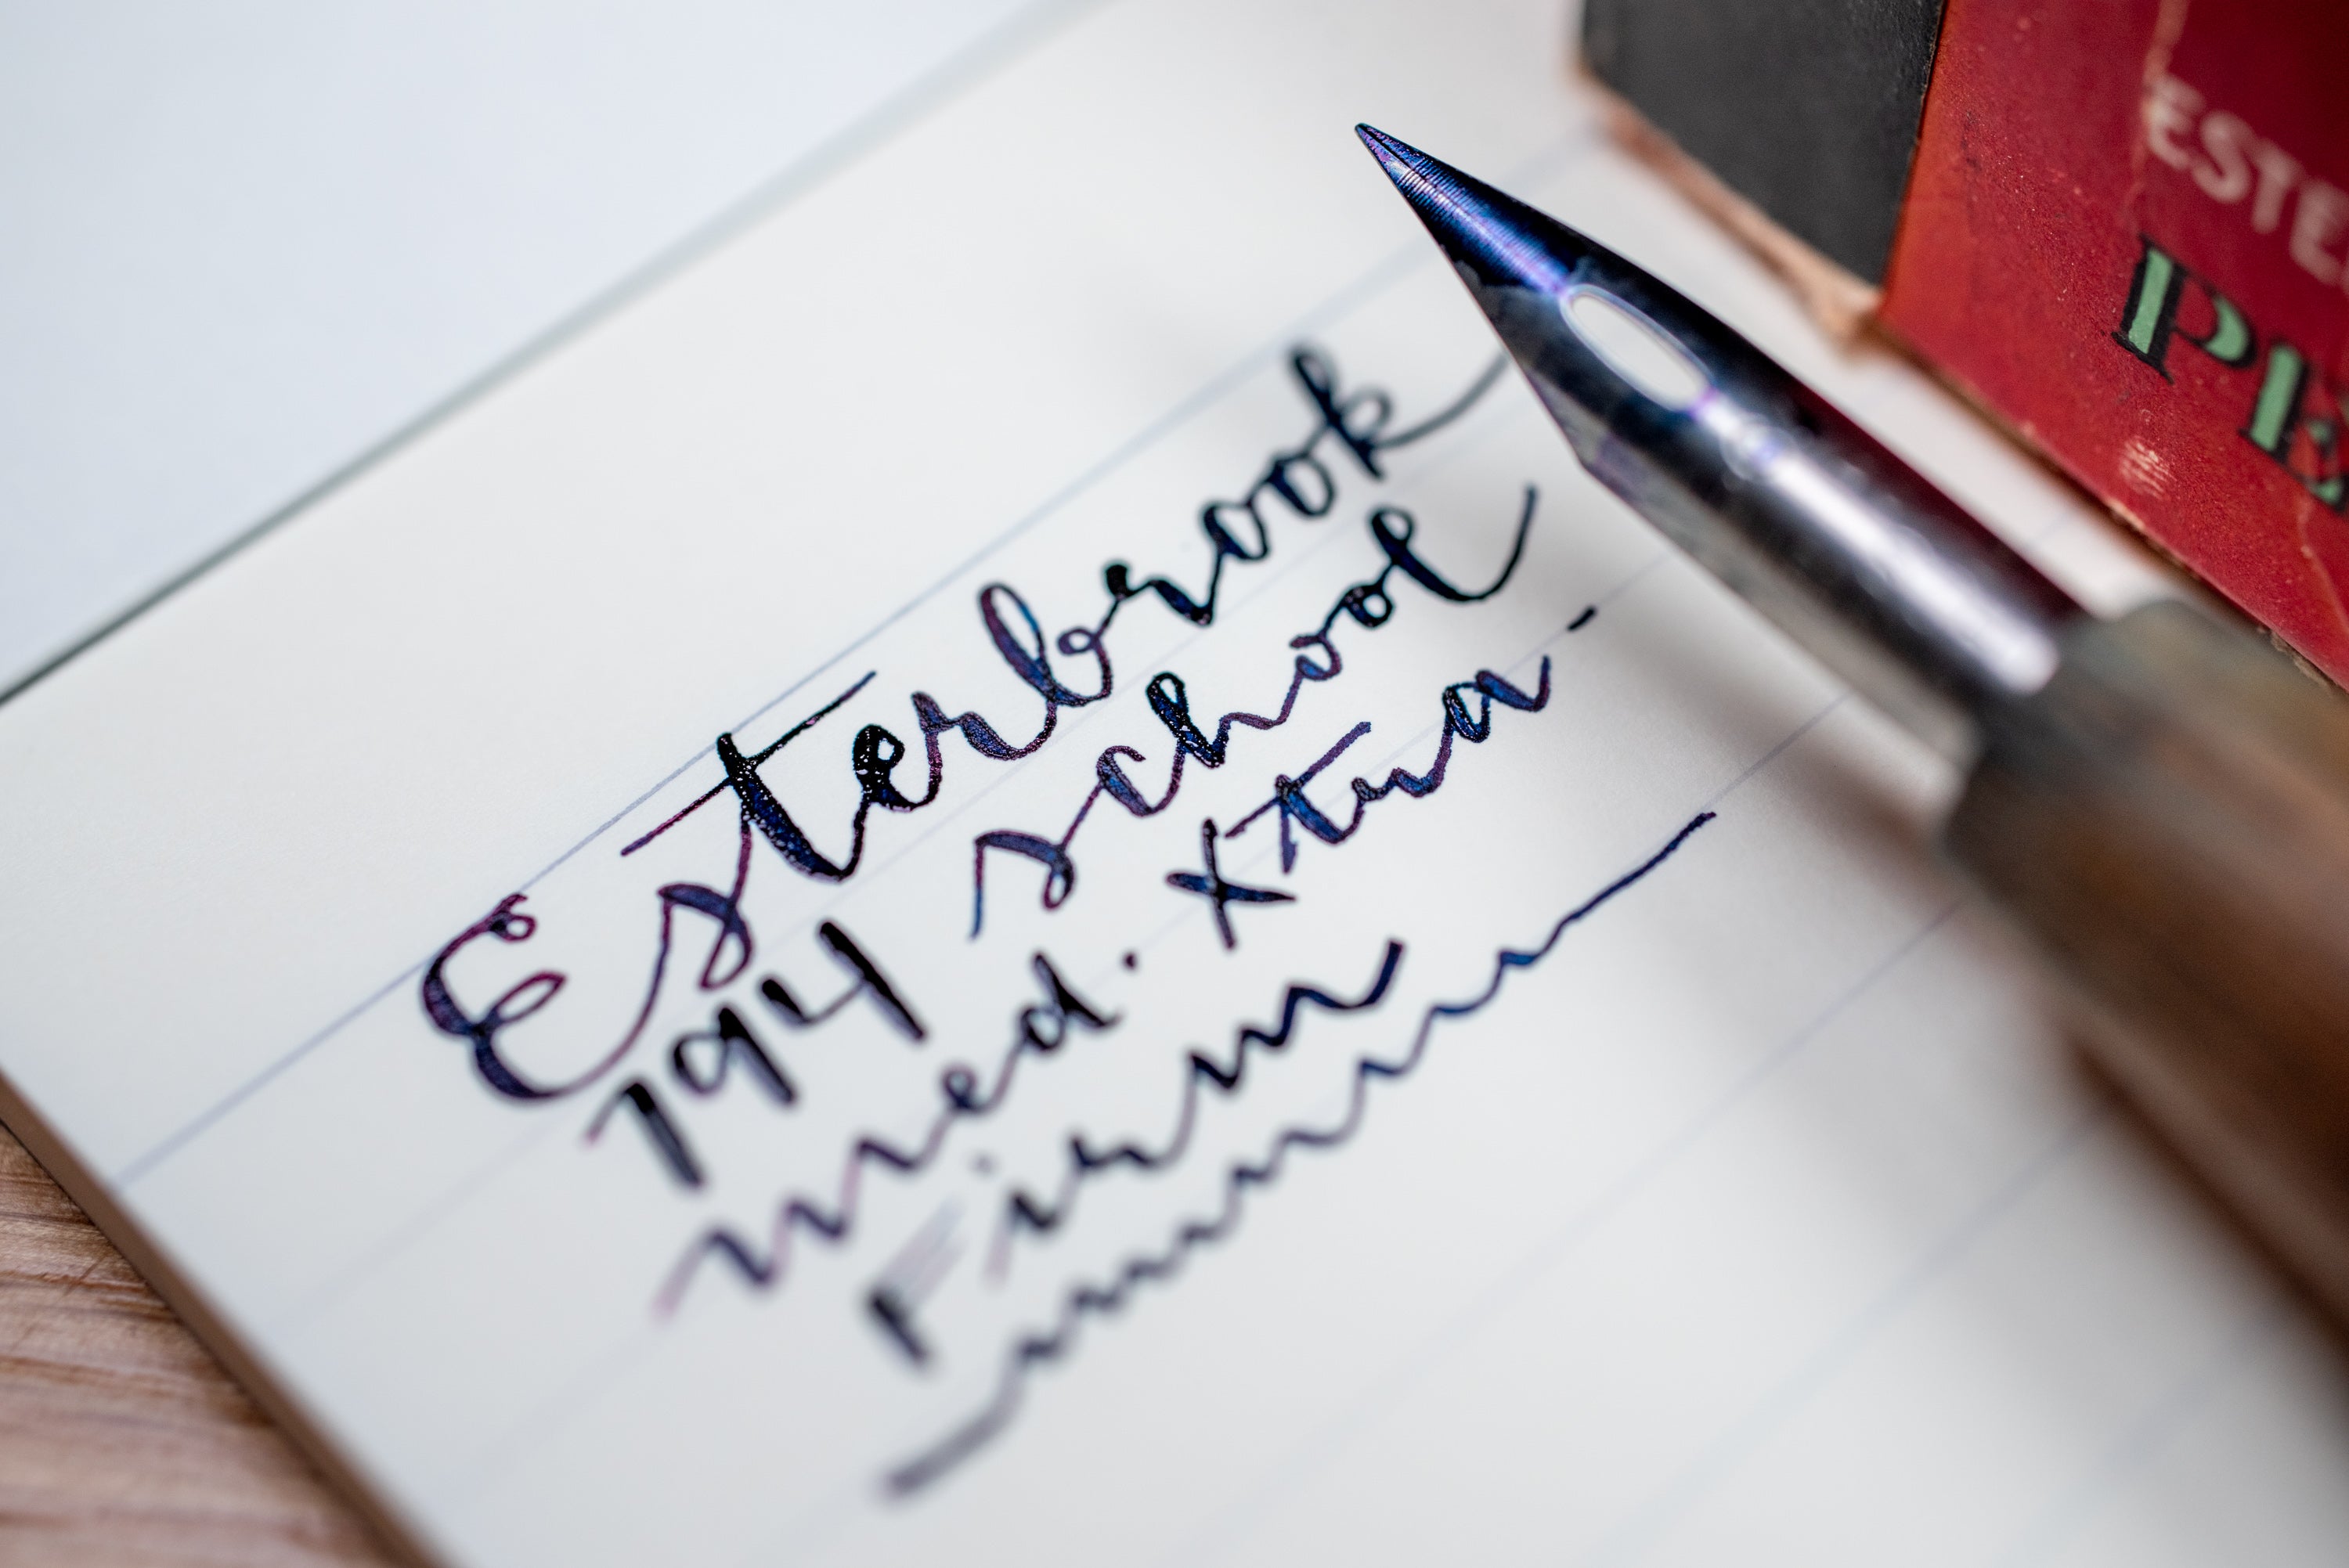 Esterbrook
794 school
med. xtra-
Firm
ESTE
PE